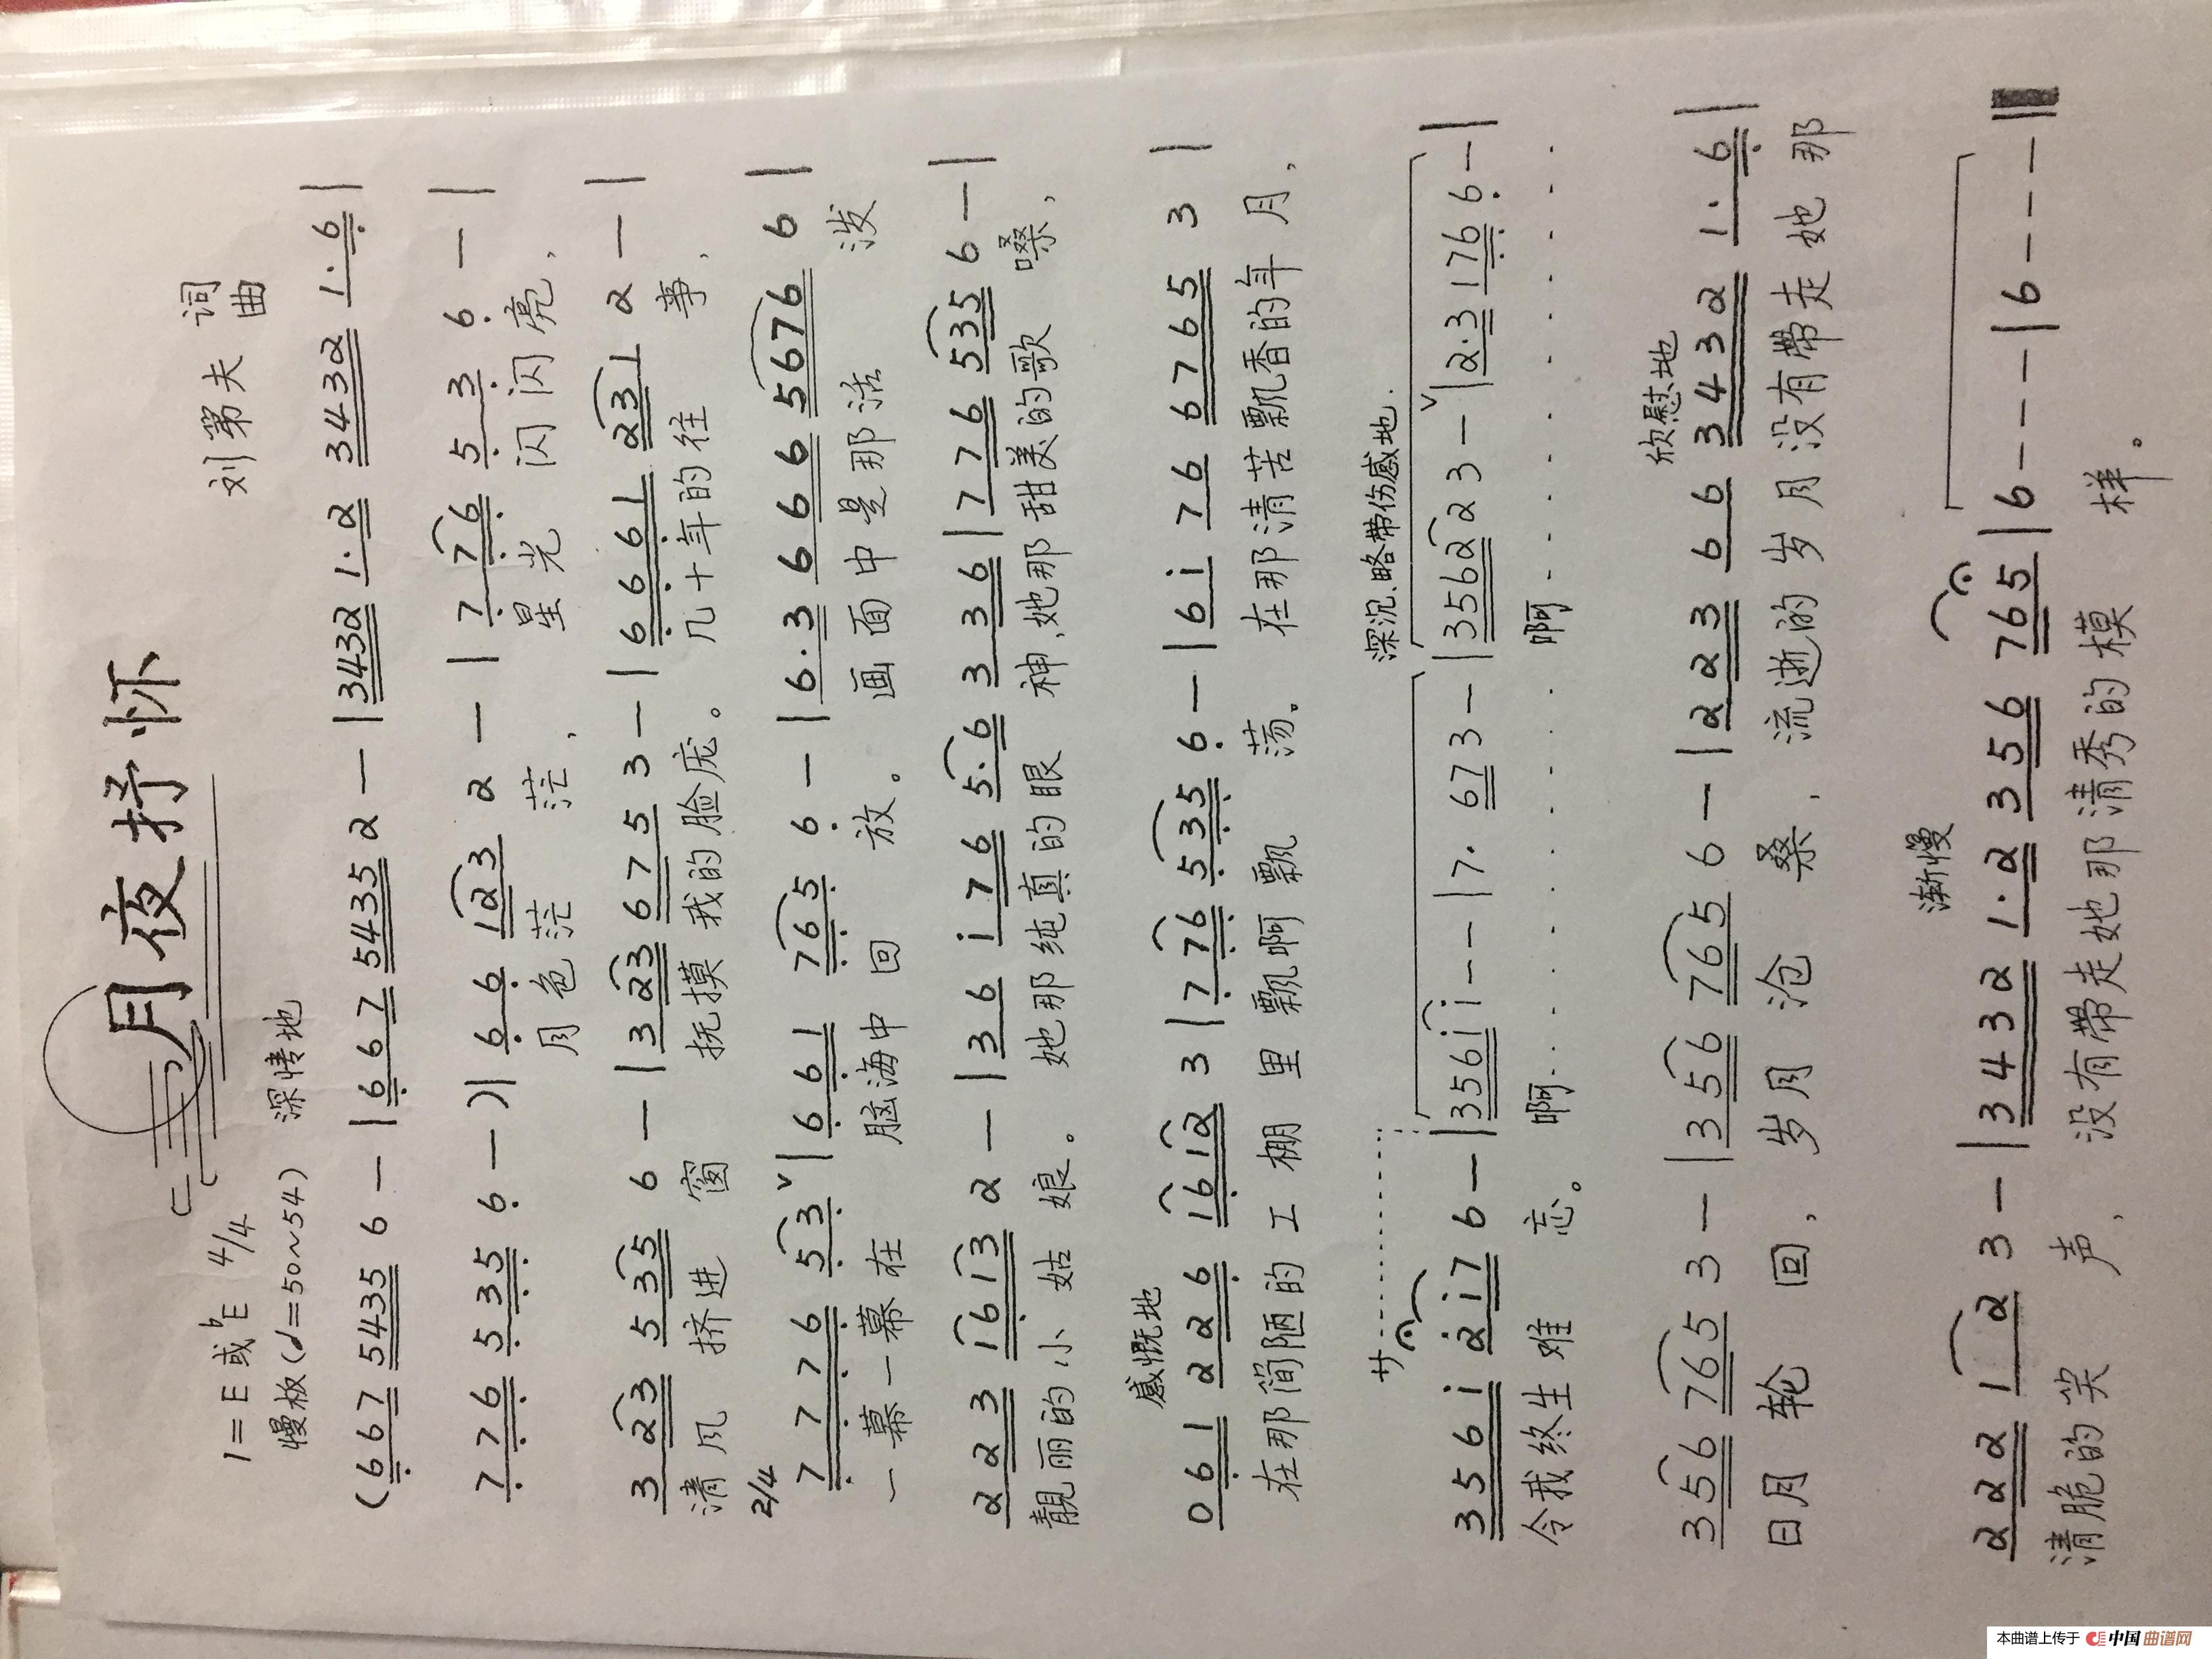 月夜抒怀
1=E 或 ♭E 4/4
刘第夫 词曲
慢板(♩=50~54) 深情地
(667 5435 6 — | 667 5435 2 — | 3432 1·2 3432 1·6 |
776 535 6 — )| 66 123 2 — | 7 76 5 3 6 — |
月色茫 茫, 星光 闪闪亮,
3 23 535 6 — | 323 675 3 — | 6661 231 2 — |
清风 挤进 窗 抚摸 我的脸庞。 几十年的往 事,
2/4
7 776 53 ∨ | 661 765 6 — | 6·3 666 5676 6 |
一幕一幕在 脑海中 回 放。 画面中是那活 泼
223 1613 2 — | 36 i76 5·6 336 | 776 535 6 — |
靓丽的小 姑 娘。 她那纯真的眼 神,她那甜美的歌 嗓,
感慨地
061 226 1612 3 | 776 535 6 — | 6i 76 6765 3 |
在那简陋的工 棚 里 飘啊飘 荡。 在那清苦飘香的年月,
サ 深沉、略带伤感地.
356i 2i7 6 — | 356i i — — | 7· 67 3 — | 3562 2 3 — ∨ | 2·3 176 6 — |
令我终生难 忘。 啊 啊
欣慰地
356 765 3 — | 356 765 6 — | 223 66 3432 1·6 |
日月 轮 回, 岁月 沧 桑, 流逝的岁月没有带走她那
渐慢
222 1 2 3 — | 3432 1·2 356 765 | 6 — — — | 6 — — — ‖
清脆的笑 声, 没有带走她那清秀的模 样。
本曲谱上传于 中国曲谱网